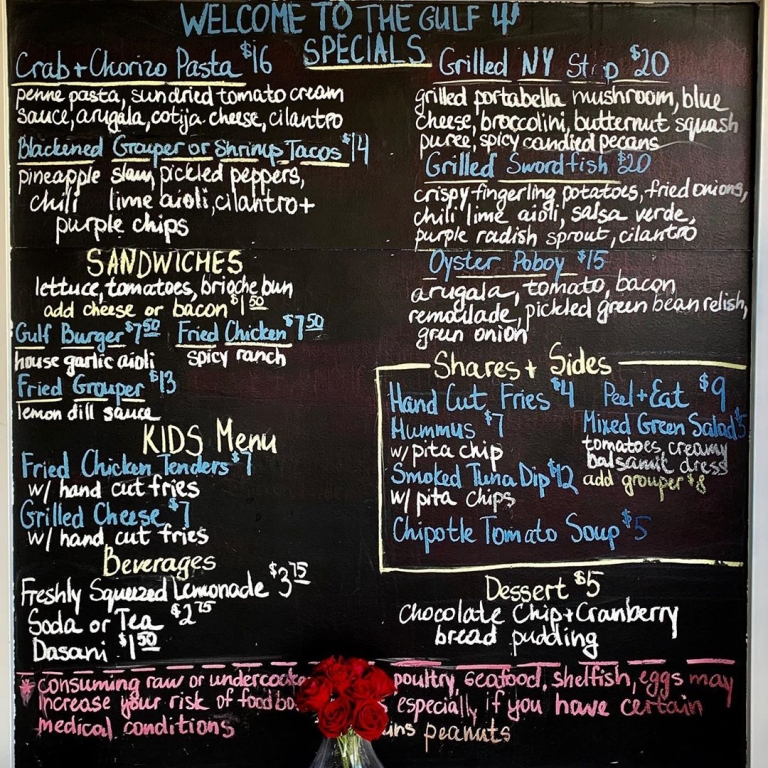 WELCOME TO THE GULF
SPECIALS
Crab + Chorizo Pasta $16
penne pasta, sundried tomato cream
sauce, arugala, cotija cheese, cilantro
Blackened Grouper or Shrimp Tacos $14
pineapple slaw, pickled peppers,
chili lime aioli, cilantro +
purple chips
SANDWICHES
lettuce, tomatoes, brioche bun
add cheese or bacon $1.50
Gulf Burger $7.50 Fried Chicken $7.50
house garlic aioli spicy ranch
Fried Grouper $13
lemon dill sauce
KIDS Menu
Fried Chicken Tenders $7
w/ hand cut fries
Grilled Cheese $7
w/ hand cut fries
Beverages
Freshly Squeezed Lemonade $3.75
Soda or Tea $2.75
Dasani $1.50
Grilled NY Strip $20
grilled portabella mushroom, blue
cheese, broccolini, butternut squash
puree, spicy candied pecans
Grilled Swordfish $20
crispy fingerling potatoes, fried onions,
chili lime aioli, salsa verde,
purple radish sprout, cilantro
Oyster Poboy $15
arugala, tomato, bacon
remoulade, pickled green bean relish,
green onion
Shares + Sides
Hand Cut Fries $4
Hummus $7
w/ pita chip
Smoked Tuna Dip $12
w/ pita chips
Chipotle Tomato Soup $5
Peel + Eat $9
Mixed Green Salad $5
tomatoes, creamy
balsamic dress
add grouper $8
Dessert $5
chocolate chip + Cranberry
bread pudding
* consuming raw or undercooke poultry, seafood, shelfish, eggs may
increase your risk of foodbo especially if you have certain
medical conditions peanuts